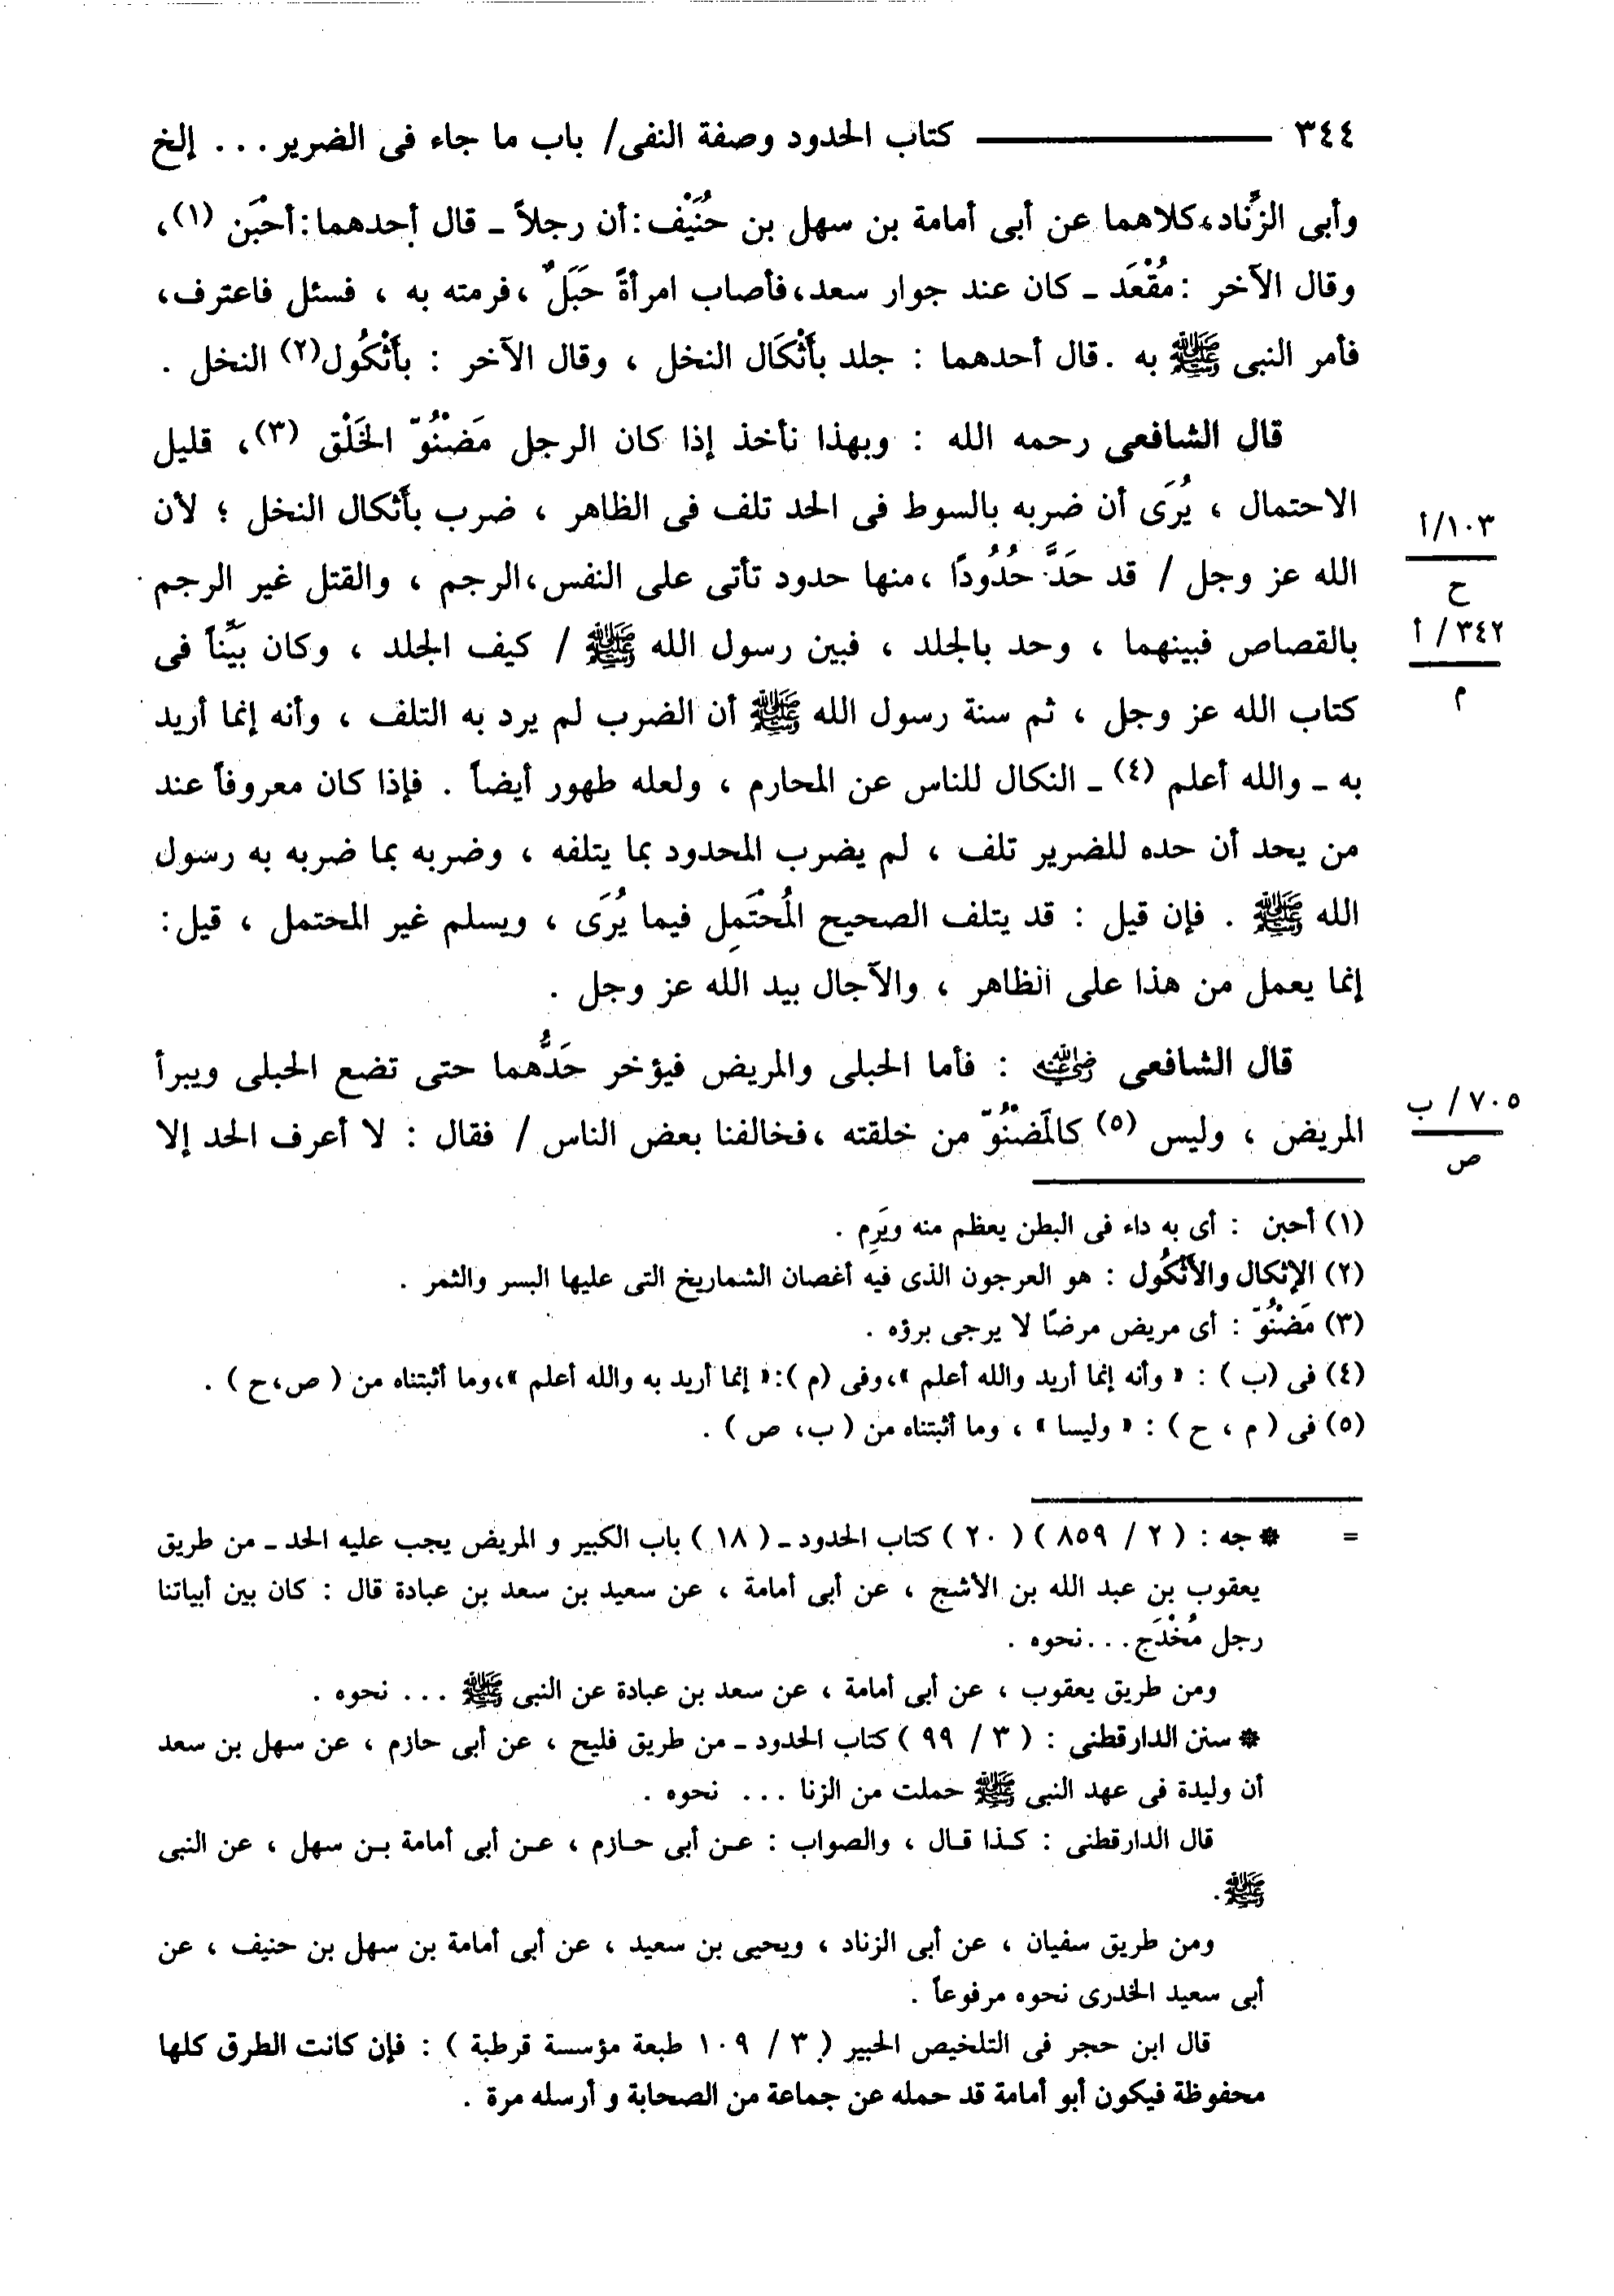 ٣٤٤ ــــــــــــ كتاب الحدود وصفة النفى/ باب ما جاء فى الضرير . . . إلخ
وأبى الزِّناد، كلاهما عن أبى أمامة بن سهل بن حُنَيْف: أن رجلاً ـ قال أحدهما: أحْبَن (١)،
وقال الآخر : مُقْعَد ـ كان عند جوار سعد، فأصاب امرأةً حَبَلٌ ، فرمته به ، فسئل فاعترف،
فأمر النبى ﷺ به . قال أحدهما : جلد بأَثْكَال النخل ، وقال الآخر : بأَثْكُول(٢) النخل .
قال الشافعى رحمه الله : وبهذا نأخذ إذا كان الرجل مَضْنُوّ الخَلْق (٣)، قليل
الاحتمال ، يُرَى أن ضربه بالسوط فى الحد تلف فى الظاهر ، ضرب بأَثكال النخل ؛ لأن
الله عز وجل / قد حَدَّ حُدُودًا ، منها حدود تأتى على النفس، الرجم ، والقتل غير الرجم
بالقصاص فبينهما ، وحد بالجلد ، فبين رسول الله ﷺ / كيف الجلد ، وكان بَيِّناً فى
كتاب الله عز وجل ، ثم سنة رسول الله ﷺ أن الضرب لم يرد به التلف ، وأنه إنما أريد
به ـ والله أعلم (٤) ـ النكال للناس عن المحارم ، ولعله طهور أيضاً . فإذا كان معروفاً عند
من يحد أن حده للضرير تلف ، لم يضرب المحدود بما يتلفه ، وضربه بما ضربه به رسول
الله ﷺ . فإن قيل : قد يتلف الصحيح المُحْتَمِل فيما يُرَى ، ويسلم غير المحتمل ، قيل :
إنما يعمل من هذا على الظاهر ، والآجال بيد الله عز وجل .
قال الشافعى رضي الله عنه : فأما الحبلى والمريض فيؤخر حَدُّهما حتى تضع الحبلى ويبرأ
المريض ، وليس (٥) كالمَضْنُوّ من خلقته ، فخالفنا بعض الناس / فقال : لا أعرف الحد إلا
١٠٣/ أ
ح
٣٤٢/ أ
م
٧٠٥/ ب
ص
(١) أحبن : أى به داء فى البطن يعظم منه ويَرِم .
(٢) الإثكال والأَثْكُول : هو العرجون الذى فيه أغصان الشماريخ التى عليها البسر والثمر .
(٣) مَضْنُوّ : أى مريض مرضًا لا يرجى برؤه .
(٤) فى (ب ) : « وأنه إنما أريد والله أعلم »، وفى (م ): « إنما أريد به والله أعلم »، وما أثبتناه من ( ص، ح ) .
(٥) فى ( م ، ح ) : « وليسا » ، وما أثبتناه من ( ب، ص ) .
= * جه : ( ٢ / ٨٥٩ ) ( ٢٠ ) كتاب الحدود ـ ( ١٨ ) باب الكبير و المريض يجب عليه الحد ـ من طريق
يعقوب بن عبد الله بن الأشج ، عن أبى أمامة ، عن سعيد بن سعد بن عبادة قال : كان بين أبياتنا
رجل مُخْدَج . . . نحوه .
ومن طريق يعقوب ، عن أبى أمامة ، عن سعد بن عبادة عن النبى ﷺ . . . نحوه .
* سنن الدارقطنى : ( ٣ / ٩٩ ) كتاب الحدود ـ من طريق فليح ، عن أبى حازم ، عن سهل بن سعد
أن وليدة فى عهد النبى ﷺ حملت من الزنا . . . نحوه .
قال الدارقطنى : كـذا قـال ، والصواب : عـن أبى حـازم ، عـن أبى أمامة بـن سهل ، عن النبى
ﷺ.
ومن طريق سفيان ، عن أبى الزناد ، ويحيى بن سعيد ، عن أبى أمامة بن سهل بن حنيف ، عن
أبى سعيد الخدرى نحوه مرفوعاً .
قال ابن حجر فى التلخيص الحبير ( ٣ / ١٠٩ طبعة مؤسسة قرطبة ) : فإن كانت الطرق كلها
محفوظة فيكون أبو أمامة قد حمله عن جماعة من الصحابة و أرسله مرة .